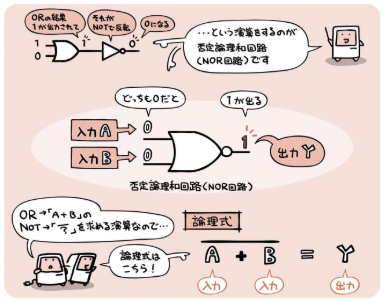 ORの結果
1が出力されて
それが
NOTで反転
0になる
1
0
1
0
…という演算をするのが
否定論理和回路
(NOR回路)です
どっちも0だと
1が出る
入力A
0
1
出力Y
入力B
0
否定論理和回路(NOR回路)
OR→「A+B」の
NOT→「‾」を求める演算なので…
論理式は
こちら!
論理式
A + B = Y
入力
入力
出力